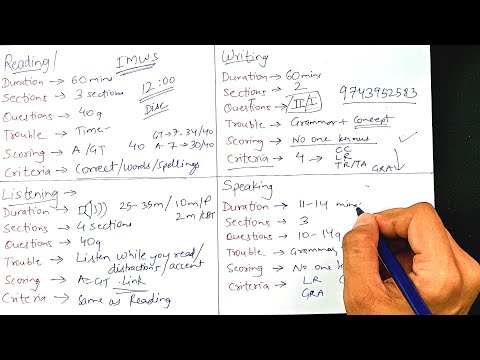 Reading/ IMWS
Duration → 60 mins
Sections → 3 sections 12:00
Disc
Questions → 40q
Trouble → Time-
GT → 7-34/40
Scoring → A/GT 40 A-7 → 30/40
Criteria → Correct/words/spellings
Writing
Duration → 60 mins
Sections → 2
Questions → II/I 9743952583
Trouble → Grammar + Concept
Scoring → No one knows
Criteria → 4 → CC
LR
TR/TA
GRA
Listening
Duration → 25-35m/10m/P
2m/CBT
Sections → 4 sections
Questions → 40q
Trouble → Listen while you read/
distractions/accent
Scoring → A=GT Link
Criteria → Same as Reading
Speaking
Duration → 11-14 mins
Sections → 3
Questions → 10-14q
Trouble → Grammar,
Scoring → No one k
Criteria → LR
GRA